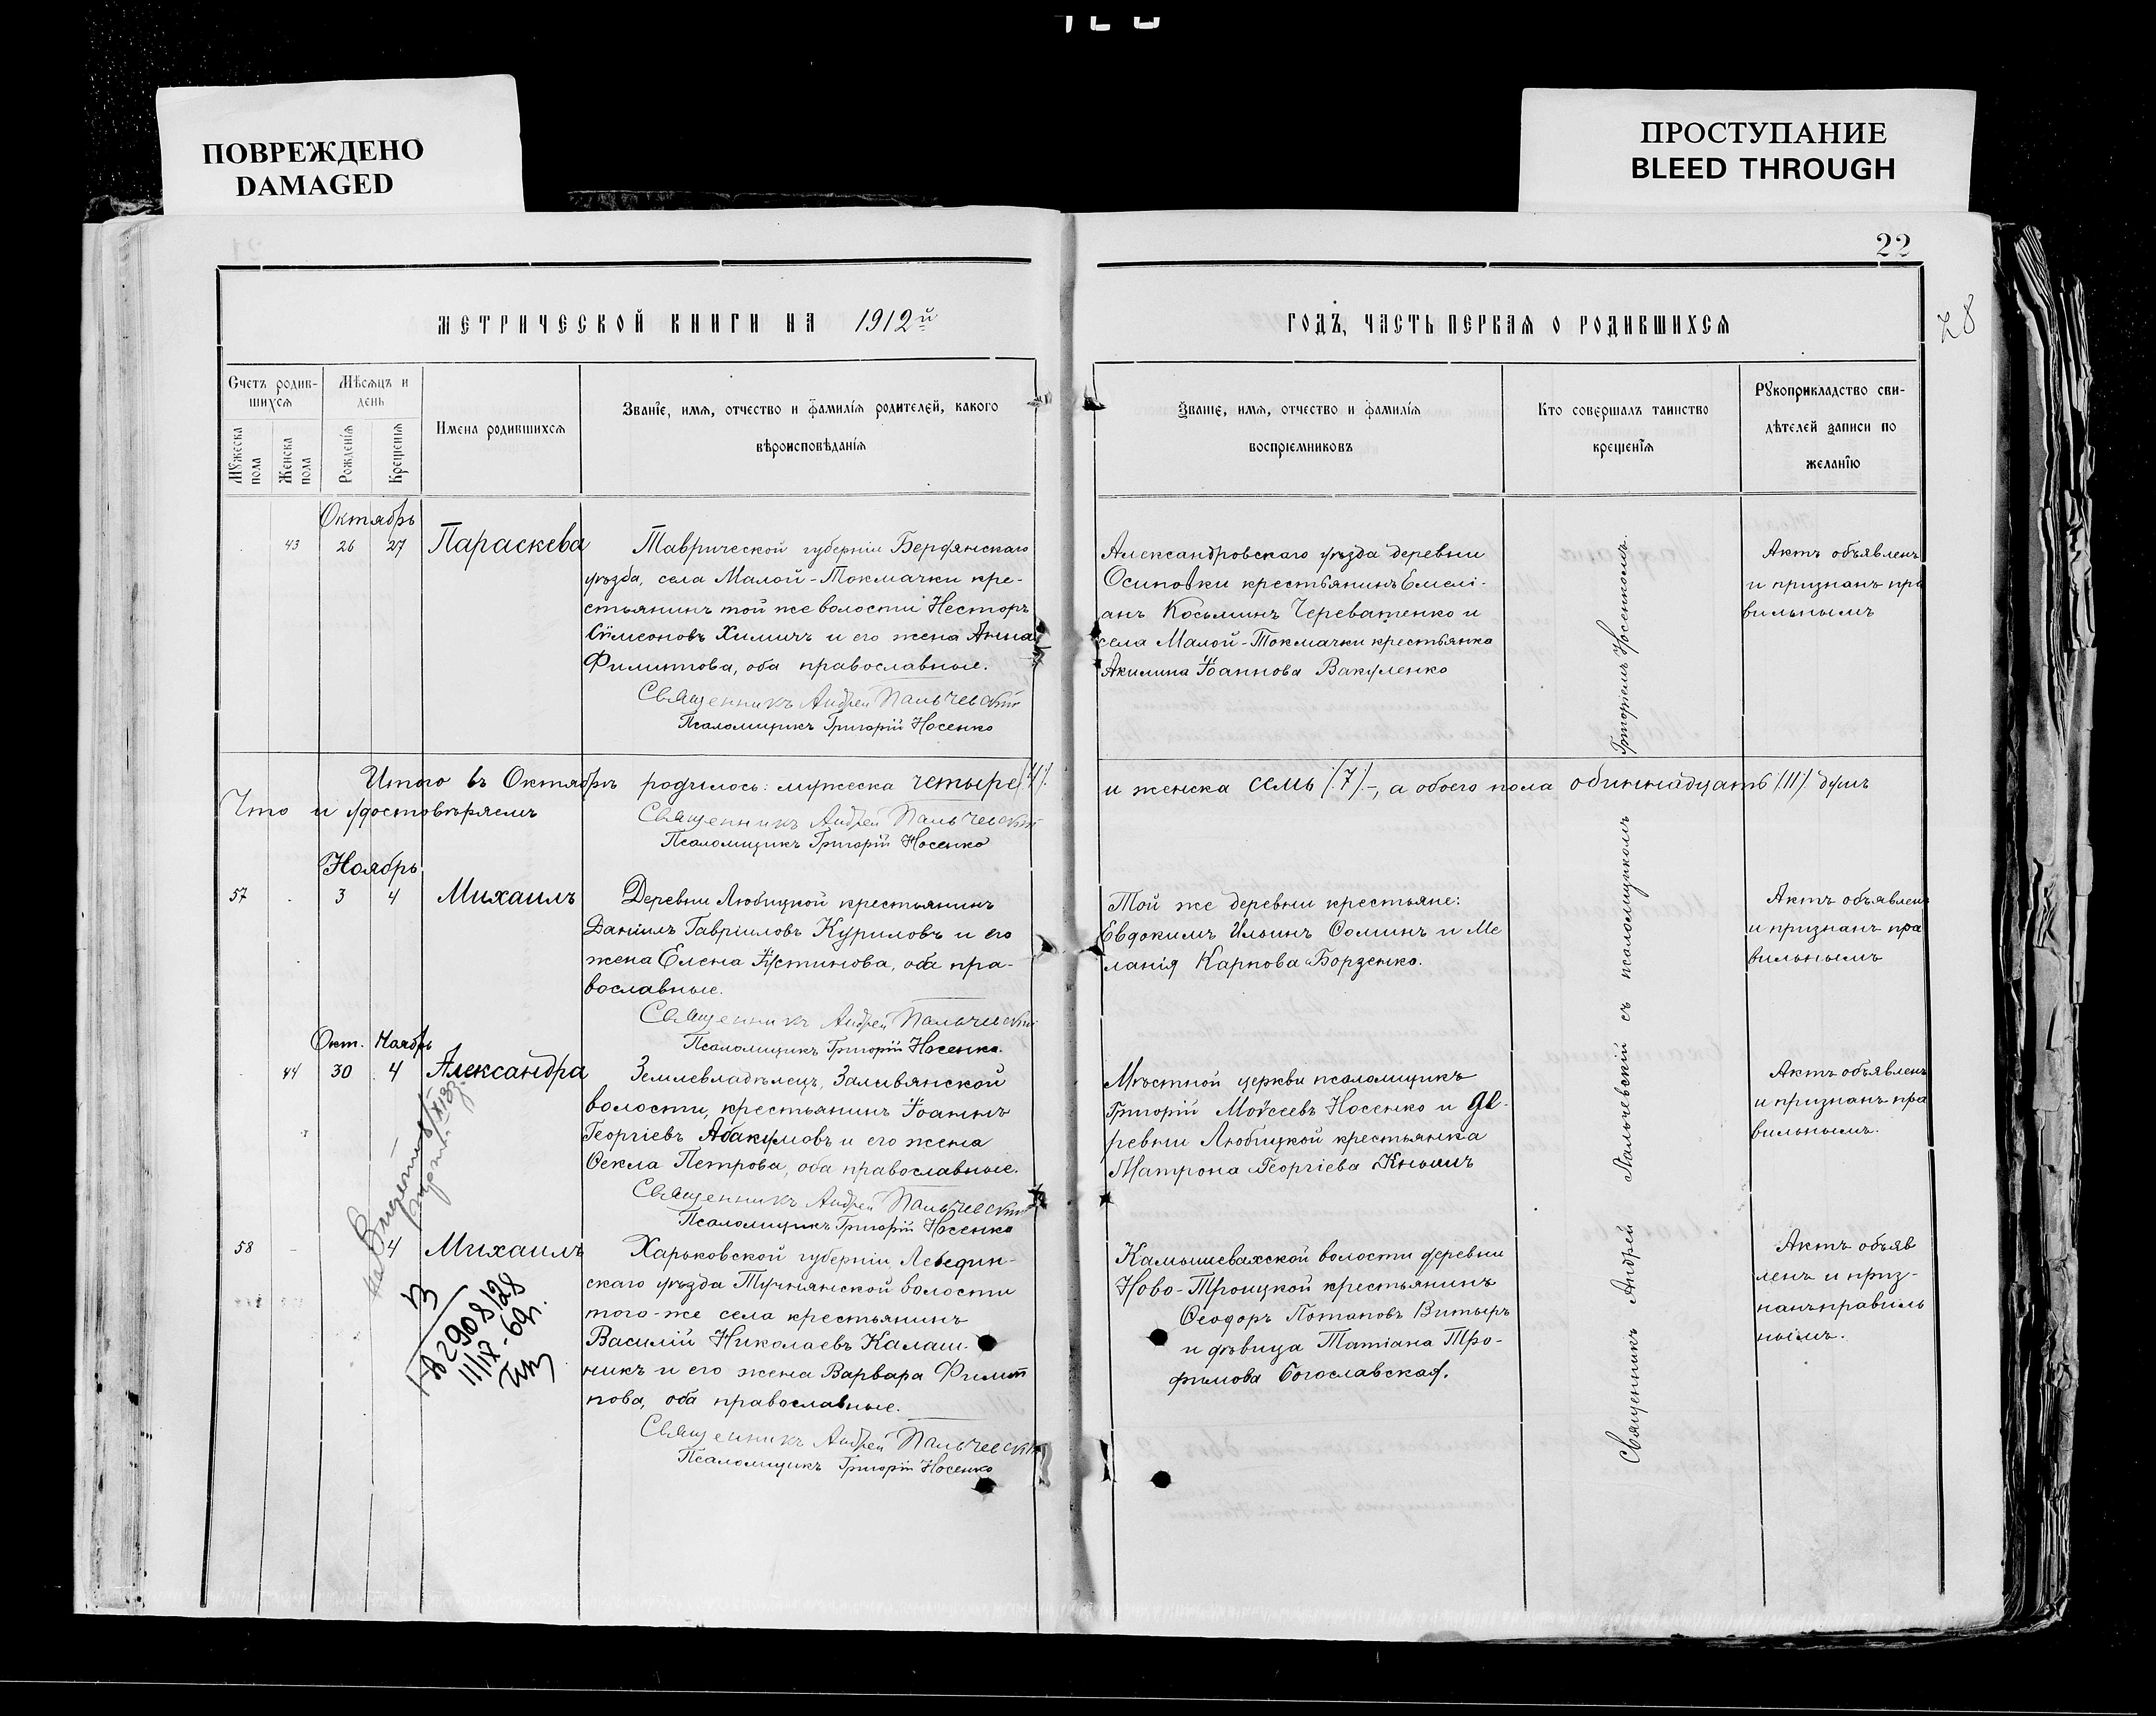 ПОВРЕЖДЕНО
DAMAGED
ПРОСТУПАНИЕ
BLEED THROUGH
22
28
МЕТРИЧЕСКОЙ КНИГИ НА 1912й
ГОДЪ, ЧАСТЬ ПЕРВАЯ О РОДИВШИХСЯ
Счетъ родив-
шихся
Мужеска пола
Женска пола
Мѣсяцъ и
день
Рожденія
Крещенія
Имена родившихся
Званіе, имя, отчество и фамилія родителей, какого
вѣроисповѣданія
Званіе, имя, отчество и фамилія
воспріемниковъ
Кто совершалъ таинство
крещенія
Рукоприкладство сви-
дѣтелей записи по
желанію
Октябрь
43 26 27 Параскева
Таврической губерніи Бердянскаго
уѣзда, села Малой-Токмачки кре-
стьянинъ той же волости Несторъ
Сѵмеоновъ Химичъ и его жена Анна
Филиппова, оба православные.
Священникъ Андрей Пальчевскій
Псаломщикъ Григорій Носенко
Александровскаго уѣзда деревни
Осиповки крестьянинъ Емелі-
анъ Косьминъ Череватенко и
села Малой-Токмачки крестьянка
Акилина Іоаннова Вакуленко
Актъ объявленъ
и признанъ пра
вильнымъ
Итого въ Октябрѣ родилось: мужеска четыре /4/.
и женска семь /.7/.-, а обоего пола одиннадцать /.11/. душъ
Что и удостовѣряемъ
Священникъ Андрей Пальчевскій
Псаломщикъ Григорій Носенко
Ноябрь
57 . 3 4 Михаилъ
Деревни Любицкой крестьянинъ
Даніилъ Гавріиловъ Куриловъ и его
жена Елена Іустинова, оба пра-
вославные.
Священникъ Андрей Пальчевскій
Псаломщикъ Григорій Носенко.
Той же деревни крестьяне:
Евдокимъ Ильинъ Ѳоминъ и Ме
ланія Карпова Борзенко.
Актъ объявленъ
и признанъ пра
вильнымъ
Окт. Ноябрь
44 30 4 Александра
Землевладѣлецъ, Заливянской
волости, крестьянинъ Іоаннъ
Георгіевъ Абакумовъ и его жена
Ѳекла Петрова, оба православные.
Священникъ Андрей Пальчевскій
Псаломщикъ Григорій Носенко
Мѣстной церкви псаломщикъ
Григорій Моѵсеевъ Носенко и де-
ревни Любицкой крестьянка
Матрона Георгіева Книшъ
Актъ объявленъ
и признанъ пра
вильнымъ.
58 4 Михаилъ
Харьковской губерніи, Лебедин-
скаго уѣзда Тучнянской волости
того-же села крестьянинъ
Василій Николаевъ Калаш-
никъ и его жена Варвара Филип
пова, оба православные.
Священникъ Андрей Пальчевскій
Псаломщикъ Григорій Носенко
Камышевахской волости деревни
Ново-Троицкой крестьянинъ
Ѳеодоръ Потаповъ Витыръ
и дѣвица Татіана Тро-
фимова Богославская.
Актъ объяв
ленъ и приз-
нанъ правиль
нымъ.
Священникъ Андрей Пальчевскій съ псаломщикомъ Григоріемъ Носенкомъ.
2908128
11/IX-69г.